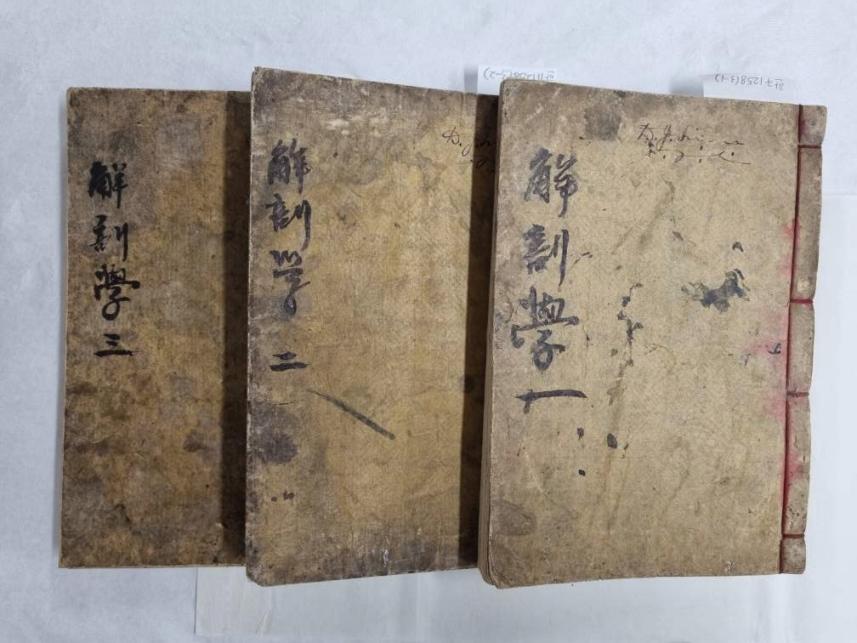 解剖學一
解剖學二
解剖學三
1258(3-1)